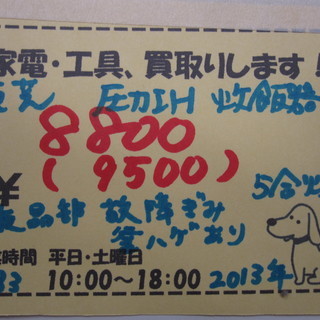 家電・工具、買取りします!
圧力IH 炊飯器
8800
(9500)
¥
5合炊
故障ぎみ
釜ハゲあり
時間 平日・土曜日
10:00～18:00 2013年